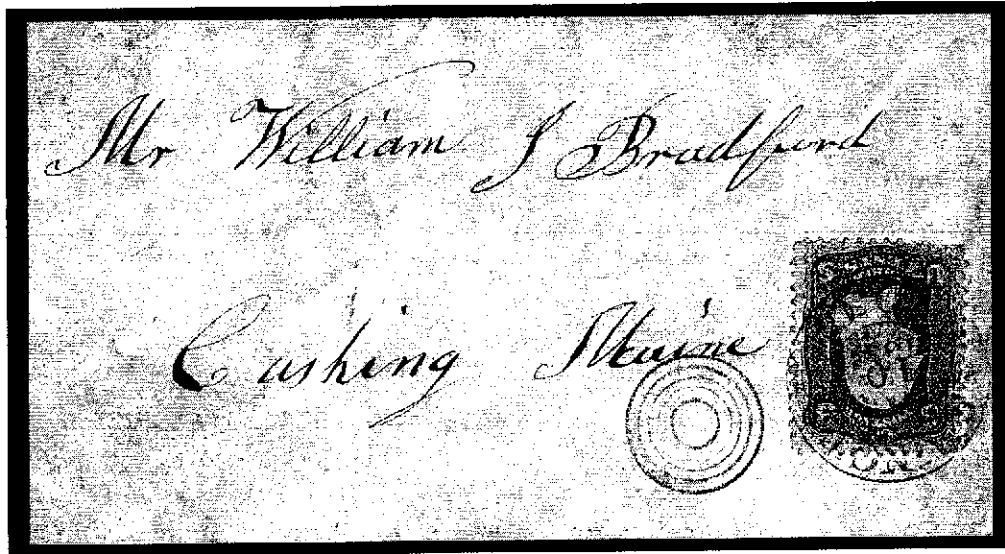 Mr William S Bradford
Cushing Maine